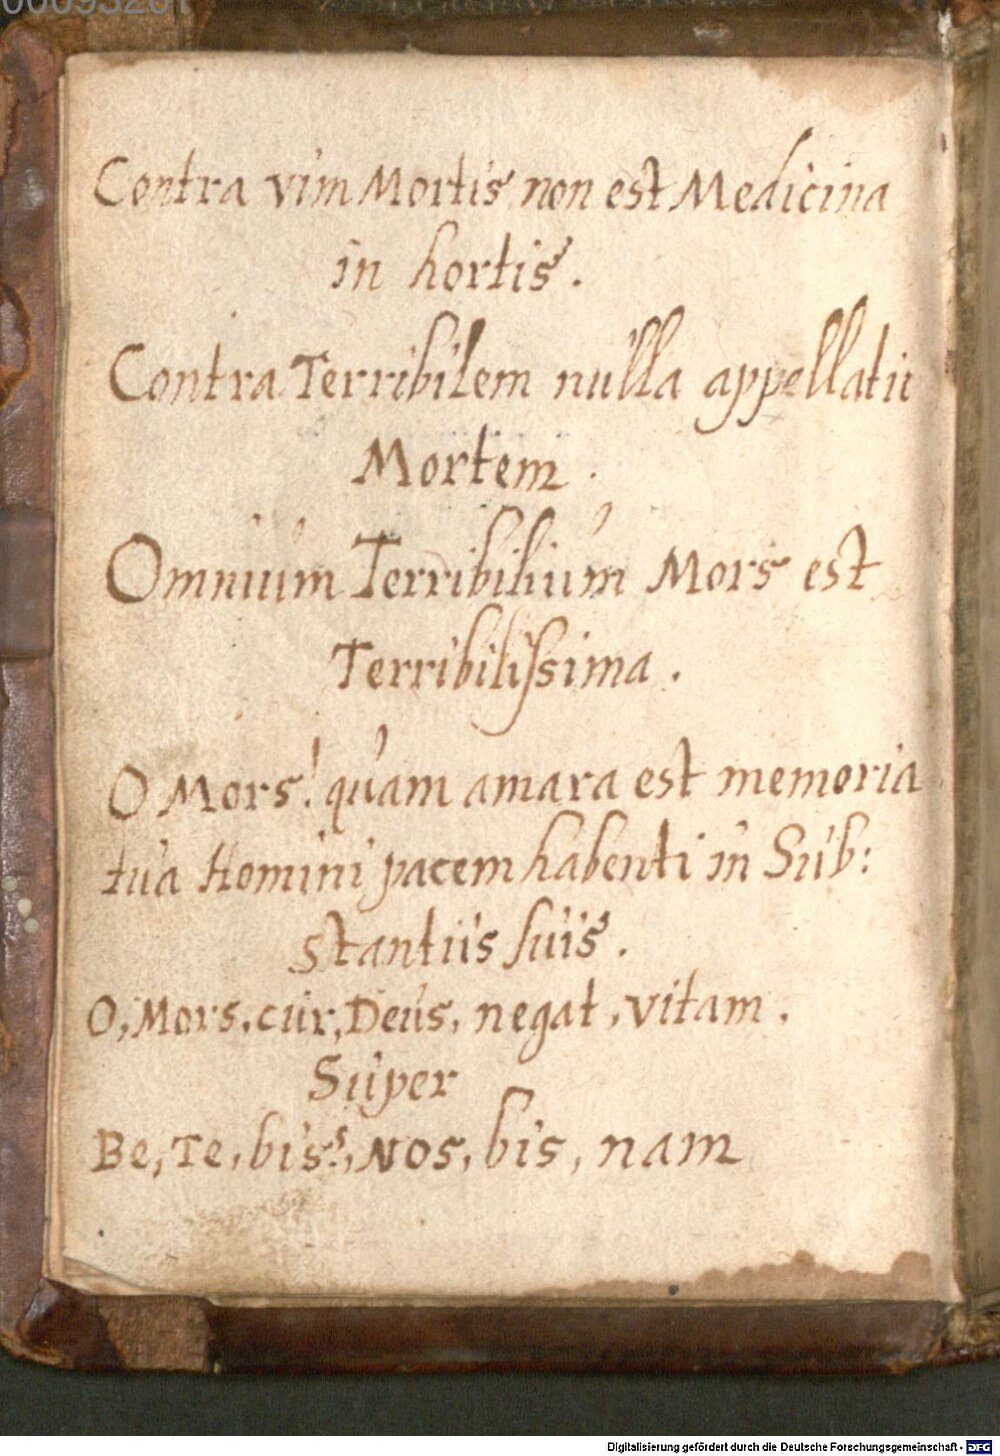 00093201
Contra vim Mortis non est Medicina
in hortis.
Contra Terribilem nulla appellatio
Mortem.
Omnium Terribilium Mors est
Terribilissima.
O Mors! quam amara est memoria
tua Homini pacem habenti in Sub:
stantiis suis.
O, Mors, cur, Deus, negat, vitam.
Super
Be, Te, bis?, Nos, bis, nam
Digitalisierung gefördert durch die Deutsche Forschungsgemeinschaft - DFG